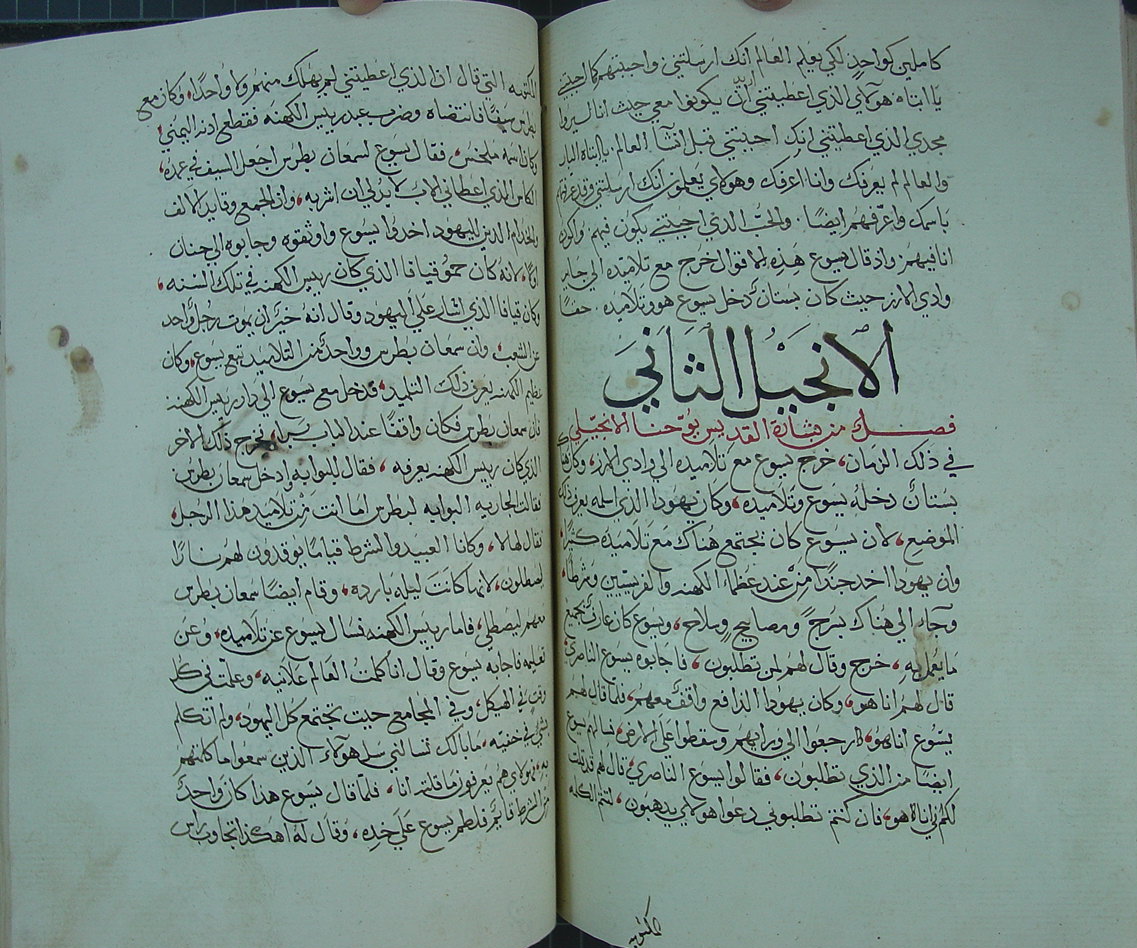 كاملين كواحدٍ لكي يعلم العالم انك ارسلتني واحببتهم كما احببتني
يا ابتاه هولاي الذي اعطيتني اُريد ان يكونوا معي حيث انا ليروا
مجدي الذي اعطيتني انك احببتني قبل انشآ العالم يا ابتاه البار
والعالم لم يعرفك وانا اعرفك وهولاي يعلمون انك ارسلتني وقد عرفتهم
باسمك واعرفهم ايضًا والحب الذي احببتني يكون فيهم واكون
انا فيهم واذ قال يسوع هذه الاقوال خرج مع تلاميذه الي جابر
وادي الارز حيث كان بستان دخل يسوع هو وتلاميذه حقًا
الانجيل الثاني
فصل من بشارة القديس يوحنا الانجيلي
في ذلك الزمان، خرج يسوع مع تلاميذه الي وادي الارز، وكان هناك
بستانٌ دخله يسوع وتلاميذه، وكان يهودا الذي اسلمه يعرف ذلك
الموضع، لان يسوع كان يجتمع هناك مع تلاميذه كثيرًا،
وان يهودا اخد جندًا من عند عظما الكهنه والفريسيين وشرطًا،
وجاء الي هناك بسرج ومصابيح وسلاح، ويسوع كان عارف بجميع
ما يعمل به، خرج وقال لهم لمن تطلبون، فاجابوه يسوع الناصري
قال لهم انا هو، وكان يهودا الدافع واقف معهم، فلما قال لهم
يسوع انا هو، ارجعوا الي ورايهم وسقطوا علي الارض، فسالهم يسوع
ايضًا من الذي تطلبون، فقالوا يسوع الناصري، قال لهم قد قلت
لكم اني انا هو، فان كنتم تطلبوني دعوا هولاي يدهبون، لتتم الكلمه
المكتوبه
المكتوبه التي قال ان الذي اعطيتني لم يهلك منهم ولا واحدًا، وكان مع
بطرس سيفًا فانتضاه وضرب عبد رييس الكهنه فقطع ادنه اليمني
وكان اسمه ملخس، فقال يسوع لسمعان بطرس اجعل السيف في غمده،
الكاس الذي اعطاني الاب لا بد لي ان اشربه، وان الجمع وقايد الالف
والخدام الدين لليهود اخدوا يسوع واوثقوه وجابوه الي حنان
اولًا، لانه كان حمو قيافا الذي كان رييس الكهنه في تلك السنه،
وكان قيافا الذي اشار علي اليهود وقال انه خير ان يموت رجل واحد
عن الشعب، وان سمعان بطرس وواحد من التلاميد تبع يسوع، وكان
عظيم الكهنه يعرف ذلك التلميد، فدخل مع يسوع الي دار رييس الكهنه
فان سمعان بطرس فكان واقفًا عند الباب برا، فخرج ذلك الاخر
الذي كان رييس الكهنه يعرفه، فقال للبوابه وادخل سمعان بطرس
فقالت الجاريه البوابه لبطرس اما انت من تلاميد هذا الرجل،
فقال لها لا، وكانا العبيد والشرط قيامًا يوقدون لهم نارًا
ليصطلون، لانها كانت ليله بارده، وقام ايضًا سمعان بطرس
معهم ليصطلي، فاما رييس الكهنه فسال يسوع عن تلاميذه، وعن
تعليمه فاجابه يسوع وقال انا كلمت العالم علانيه، وعلمت في كل
وقت في الهيكل، وفي المجامع حيث تجتمع كل اليهود، ولم اتكلم
بشي في خفيه، ما بالك تسالني سل هولاء الذين سمعوا ما كلمتهم
به، فهولاي هم يعرفون ما قلته انا، فلما قال يسوع هذا كان واحد
من الشرط قايم فلطم يسوع علي خده، وقال له اهكذا تجاوب راس